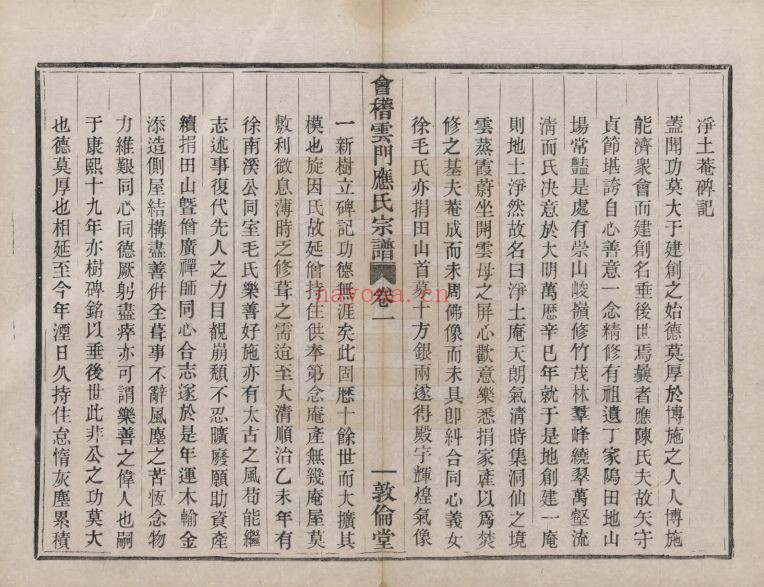 淨土菴碑記
蓋聞功莫大于建創之始德莫厚於博施之人人博施
能濟衆會而建創名垂後世焉曩者應陳氏夫故矢守
貞節堪誇自心善意一念精修有祖遺丁家隖田地山
場常豔是處有崇山峻嶺修竹茂林羣峰繞翠萬壑流
清而氏决意於大明萬曆辛巳年就于是地創建一庵
則地土淨然故名曰淨土庵天朗氣清時集洞仙之境
雲蒸霞蔚坐開雲母之屏心歡意樂悉捐家產以爲焚
修之基夫菴成而未周佛像而未具卽糾合同心義女
徐毛氏亦捐田山首募十方銀兩遂得殿宇輝煌氣像
會稽雲門應氏宗譜
卷一
一
敦倫堂
一新樹立碑記功德無涯矣此固曆十餘世而大擴其
模也旋因氏故延僧持住供奉第念庵產無幾庵屋莫
敷利微息薄時乏修葺之需迨至大清順治乙未年有
徐南溪公同室毛氏樂善好施亦有太古之風苟能繼
志述事復代先人之力目覩崩頹不忍曠廢願助資產
續捐田山曁僧廣禪師同心合志遂於是年運木輸金
添造側屋結構盡善併全葺事不辭風塵之苦恆念物
力維艱同心同德厥躬盡瘁亦可謂樂善之偉人也嗣
于康熙十九年亦樹碑銘以垂後世此非公之功莫大
也德莫厚也相延至今年湮日久持住怠惰灰塵累積
nayona.cn